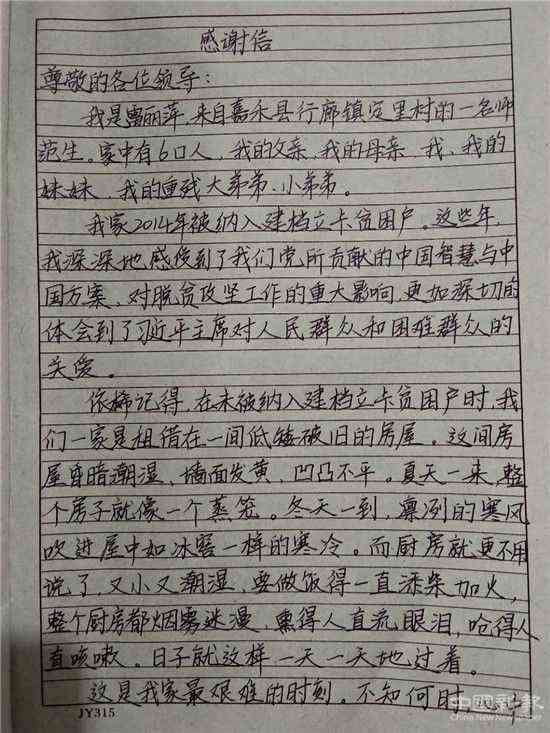 感谢信
尊敬的各位领导：
我是曾丽萍，来自嘉禾县行廊镇定里村的一名师
范生。家中有6口人，我的父亲、我的母亲、我、我的
妹妹、我的重残大弟弟、小弟弟。
我家2014年被纳入建档立卡贫困户。这些年，
我深深地感受到了我们党所贡献的中国智慧与中
国方案，对脱贫攻坚工作的重大影响，更加深切的
体会到了习近平主席对人民群众和困难群众的
关爱。
依稀记得，在未被纳入建档立卡贫困户时，我
们一家是租借在一间低矮破旧的房屋。这间房
屋昏暗潮湿，墙面发黄，凹凸不平。夏天一来，整
个房子就像一个蒸笼。冬天一到，凛冽的寒风
吹进屋中如冰窖一样的寒冷。而厨房就更不用
说了，又小又潮湿，要做饭得一直添柴加火，
整个厨房都烟雾迷漫，熏得人直流眼泪，呛得人
直咳嗽。日子就这样一天一天地过着。
这是我家最艰难的时刻。不知何时
JY315
中國新報
China New Newspaper